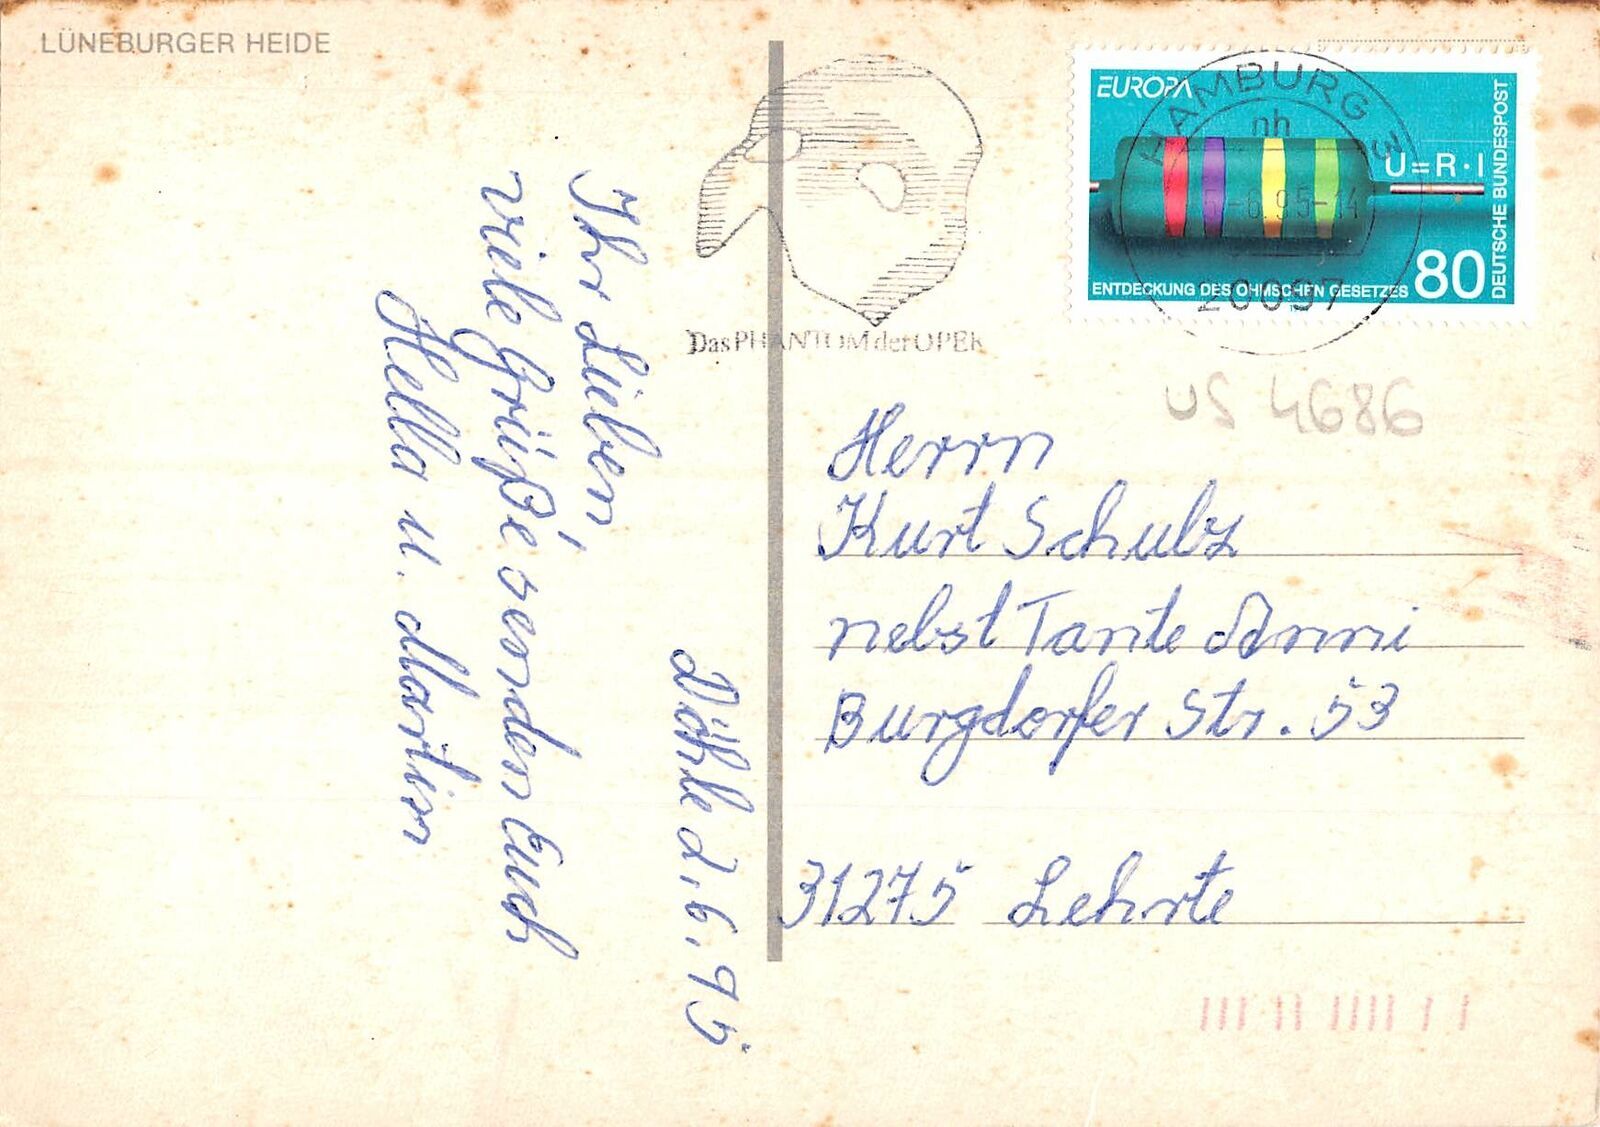 LÜNEBURGER HEIDE
Döhle 2.6.95.
Ihr Lieben,
viele Grüße senden Euch
Hella u. Martin
Das PHANTOM der OPER
EUROPA
U=R·I
ENTDECKUNG DES OHMSCHEN GESETZES
80
DEUTSCHE BUNDESPOST
HAMBURG 3
nh
-6.95-14
20097
US 4686
Herrn
Kurt Schulz
nebst Tante Änni
Burgdorfer Str. 53
31275 Lehrte